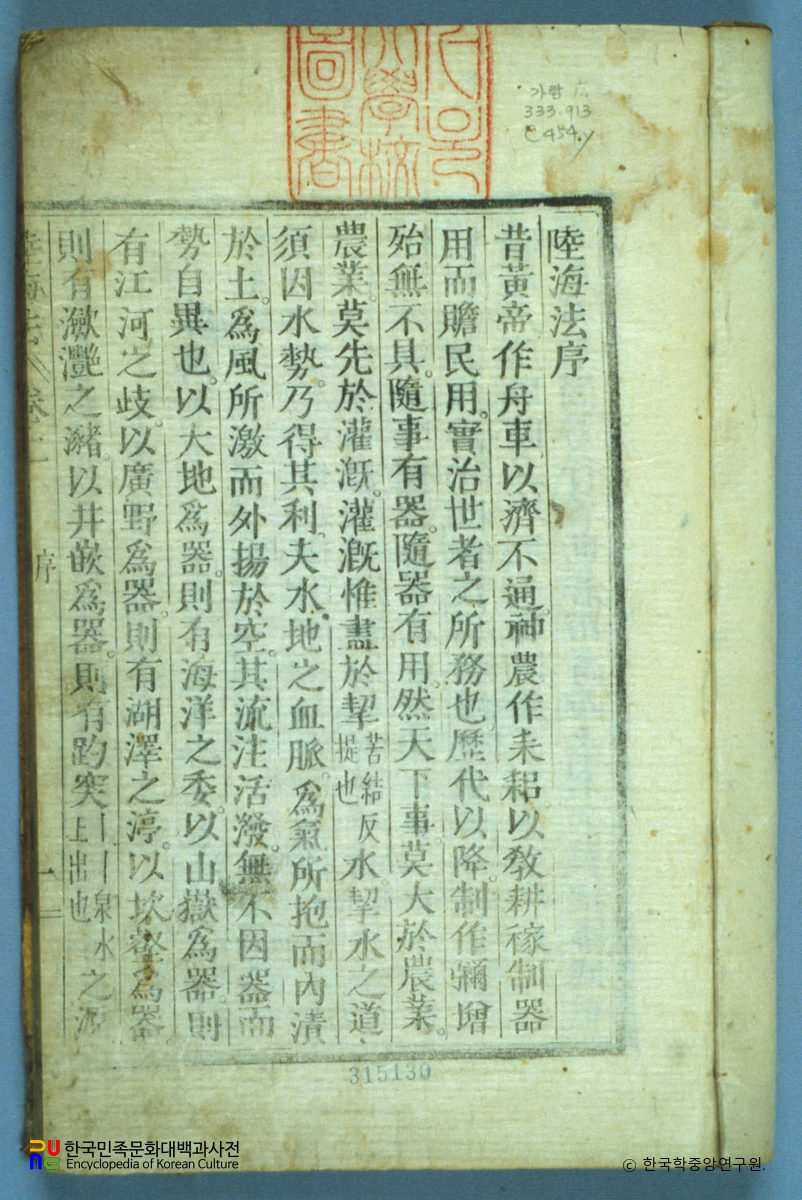 가람
333.913
陸海法序
昔黃帝作舟車以濟不通。神農作耒耜以敎耕稼制器
用而贍民用。實治世者之所務也。歷代以降。制作彌增
殆無不具。隨事有器。隨器有用。然天下事。莫大於農業。
農業。莫先於灌漑。灌漑惟盡於挈苦結反提也水。挈水之道。
須因水勢。乃得其利。夫水地之血脈。爲氣所抱而內漬
於土。爲風所激而外揚於空。其流注活潑。無不因器而
勢自異也。以大地爲器。則有海洋之委。以山嶽爲器則
有江河之歧。以廣野爲器。則有湖澤之渟。以坎壑爲器
則有瀲灎之瀦以井嵌爲器。則有趵突丨丨泉水之源上出也
陸海法 卷上
序
一
315130
한국민족문화대백과사전
Encyclopedia of Korean Culture
© 한국학중앙연구원.